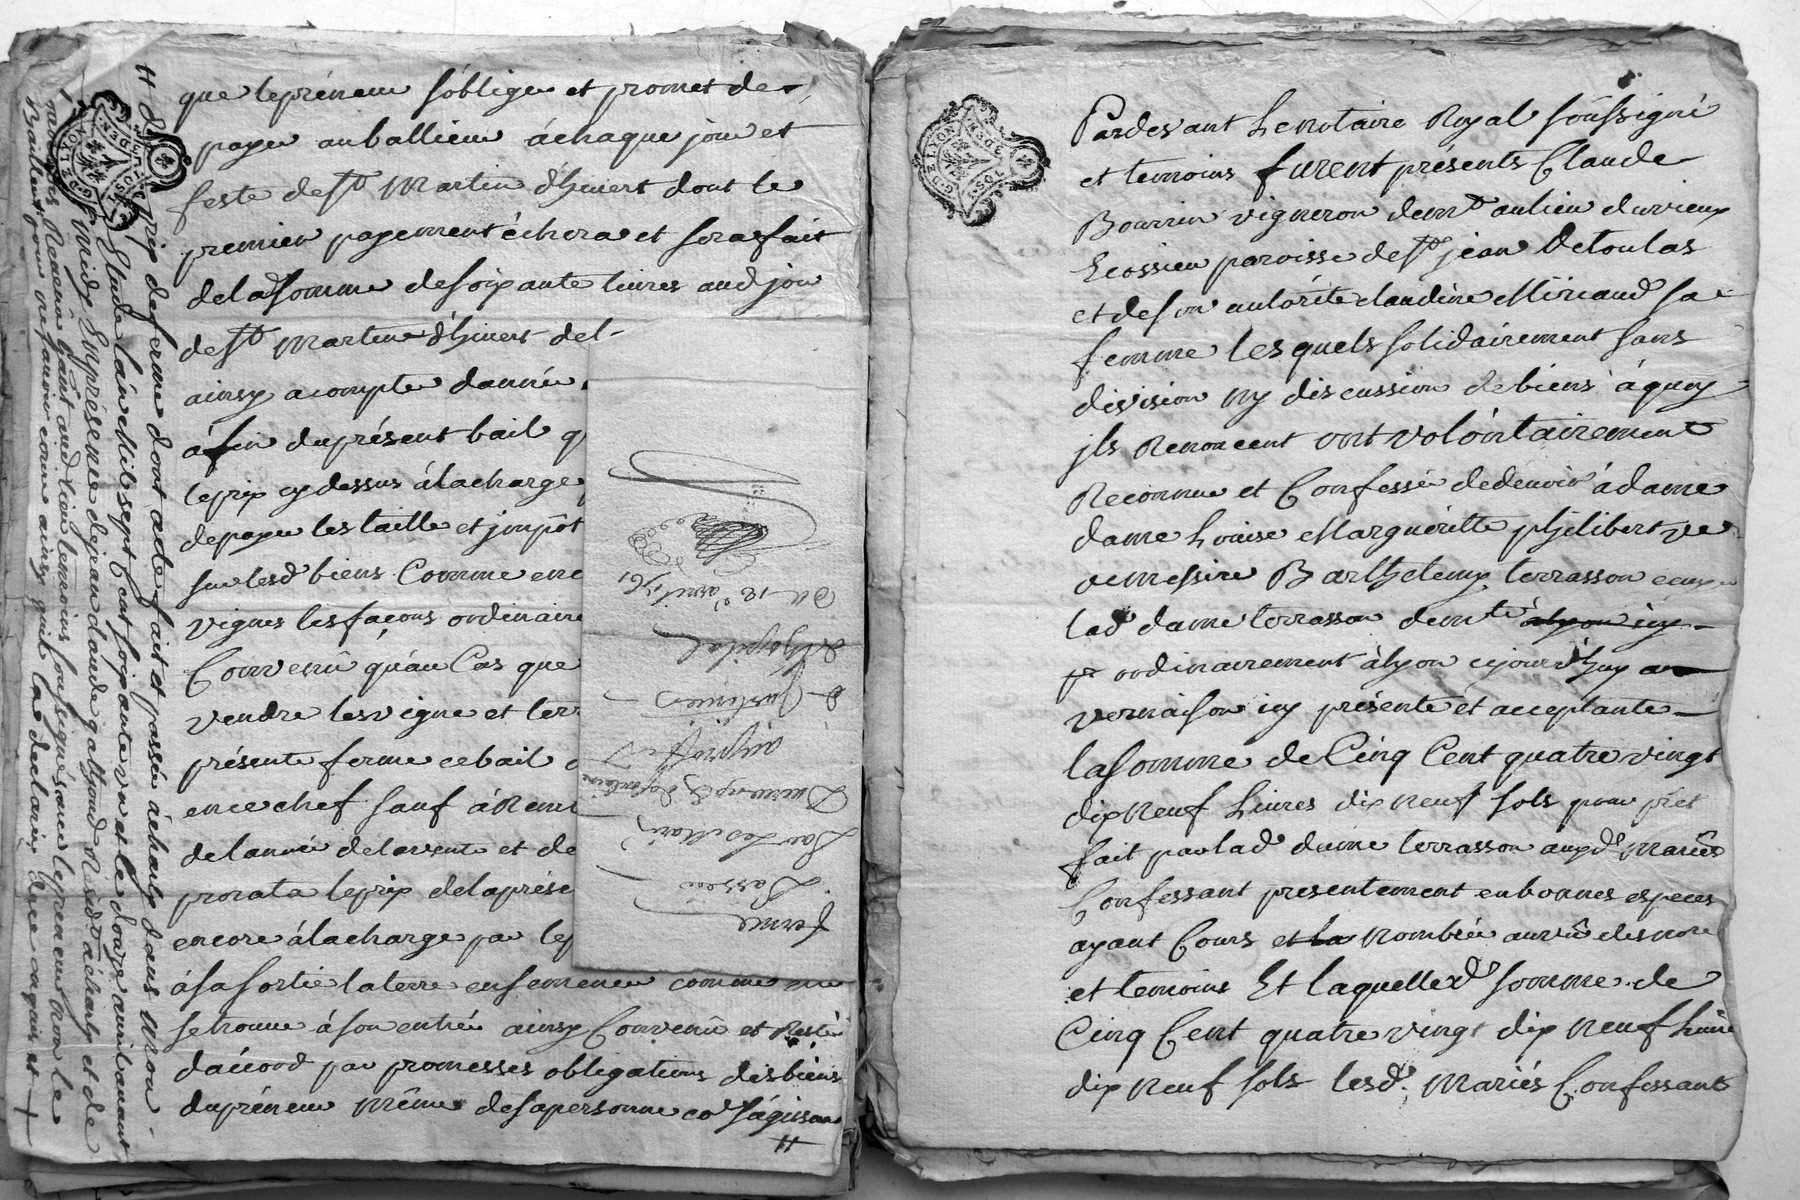 que lepréneur s'oblige et promet de
payer au ballieur á chaque jour et
feste de St Martin d'hivert dont le
premier payement échera et sera fait
de la somme de soixante livres aud jour
de St Martin d'hivert de
ainsy a compte d'année
á fin du présent bail
le prix cy dessus á la charge
de payer les taille et impôt
sur lesd biens Comme enc
vignes les façons ordinaire
Convenû qu'au Cas que
vendre les vigne et terr
présente ferme ce bail
en ce chef sauf á Rem
de l'année de la vente et de
prorata le prix de la prése
encore á la charge par lep
á sa sortie la terre ensemencée comme
se trouve á son entrée ainsy Convenû et Resté
d'accord par promesses obligations des biens
du préneur même de sa personne s'ágissant
#
# prix de ferme dont acte fait et passé á charly dans
Etude l'an Mil sept Cent soixante un et le douze avril avant
midy En présence de jean claude gathond Résidt á charly et de
Reacni gant aud lieu temoins soussignés avec le preneur non le
Bailleur pour ne savoir comme ainsy qu'il l'a déclaré de ce enquis et
ferme
Passée
Par Les Mariés
au proffit
de Justinien
de l'hopital
Du 12e avril 1761
Pardevant Le notaire Royal soûssigné
et temoins furent présents Claude
Bourrin vigneron demt au lieu du vieux
Ecossieu parroisse de St jean De toulas
et de son autorité claudine Miricaud sa
femme lesquels solidairement sans
division ny discussion de biens á quoy
jls Renoncent ont volóntairement
Reconnu et Confessé de devoir á dame
dame Louise Marguéritte philibert ve
de messire Barthelemy terrasson
lad dame terrasson demte a lyon icy
ordinairement á lyon cejourd'huy a
vernaison icy présente et acceptante
la somme de Cinq Cent quatre vingt
dix Neuf Livres dix neuf sols pour prêt
fait par lad dame terrasson auxds Mariés
Confessant presentement en bonnes especes
ayant Cours et la Nombrée au vû des nore
et temoins Et laquelled somme de
Cinq Cent quatre vingt dix Neuf Livre
dix Neuf sols lesd. Mariés Confessants